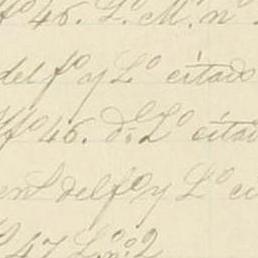 fº 46. Lº. M. nº
del fº y Lº citado
fº 46. d. Lº citad
del fº y Lº ci
47 L. nº 2